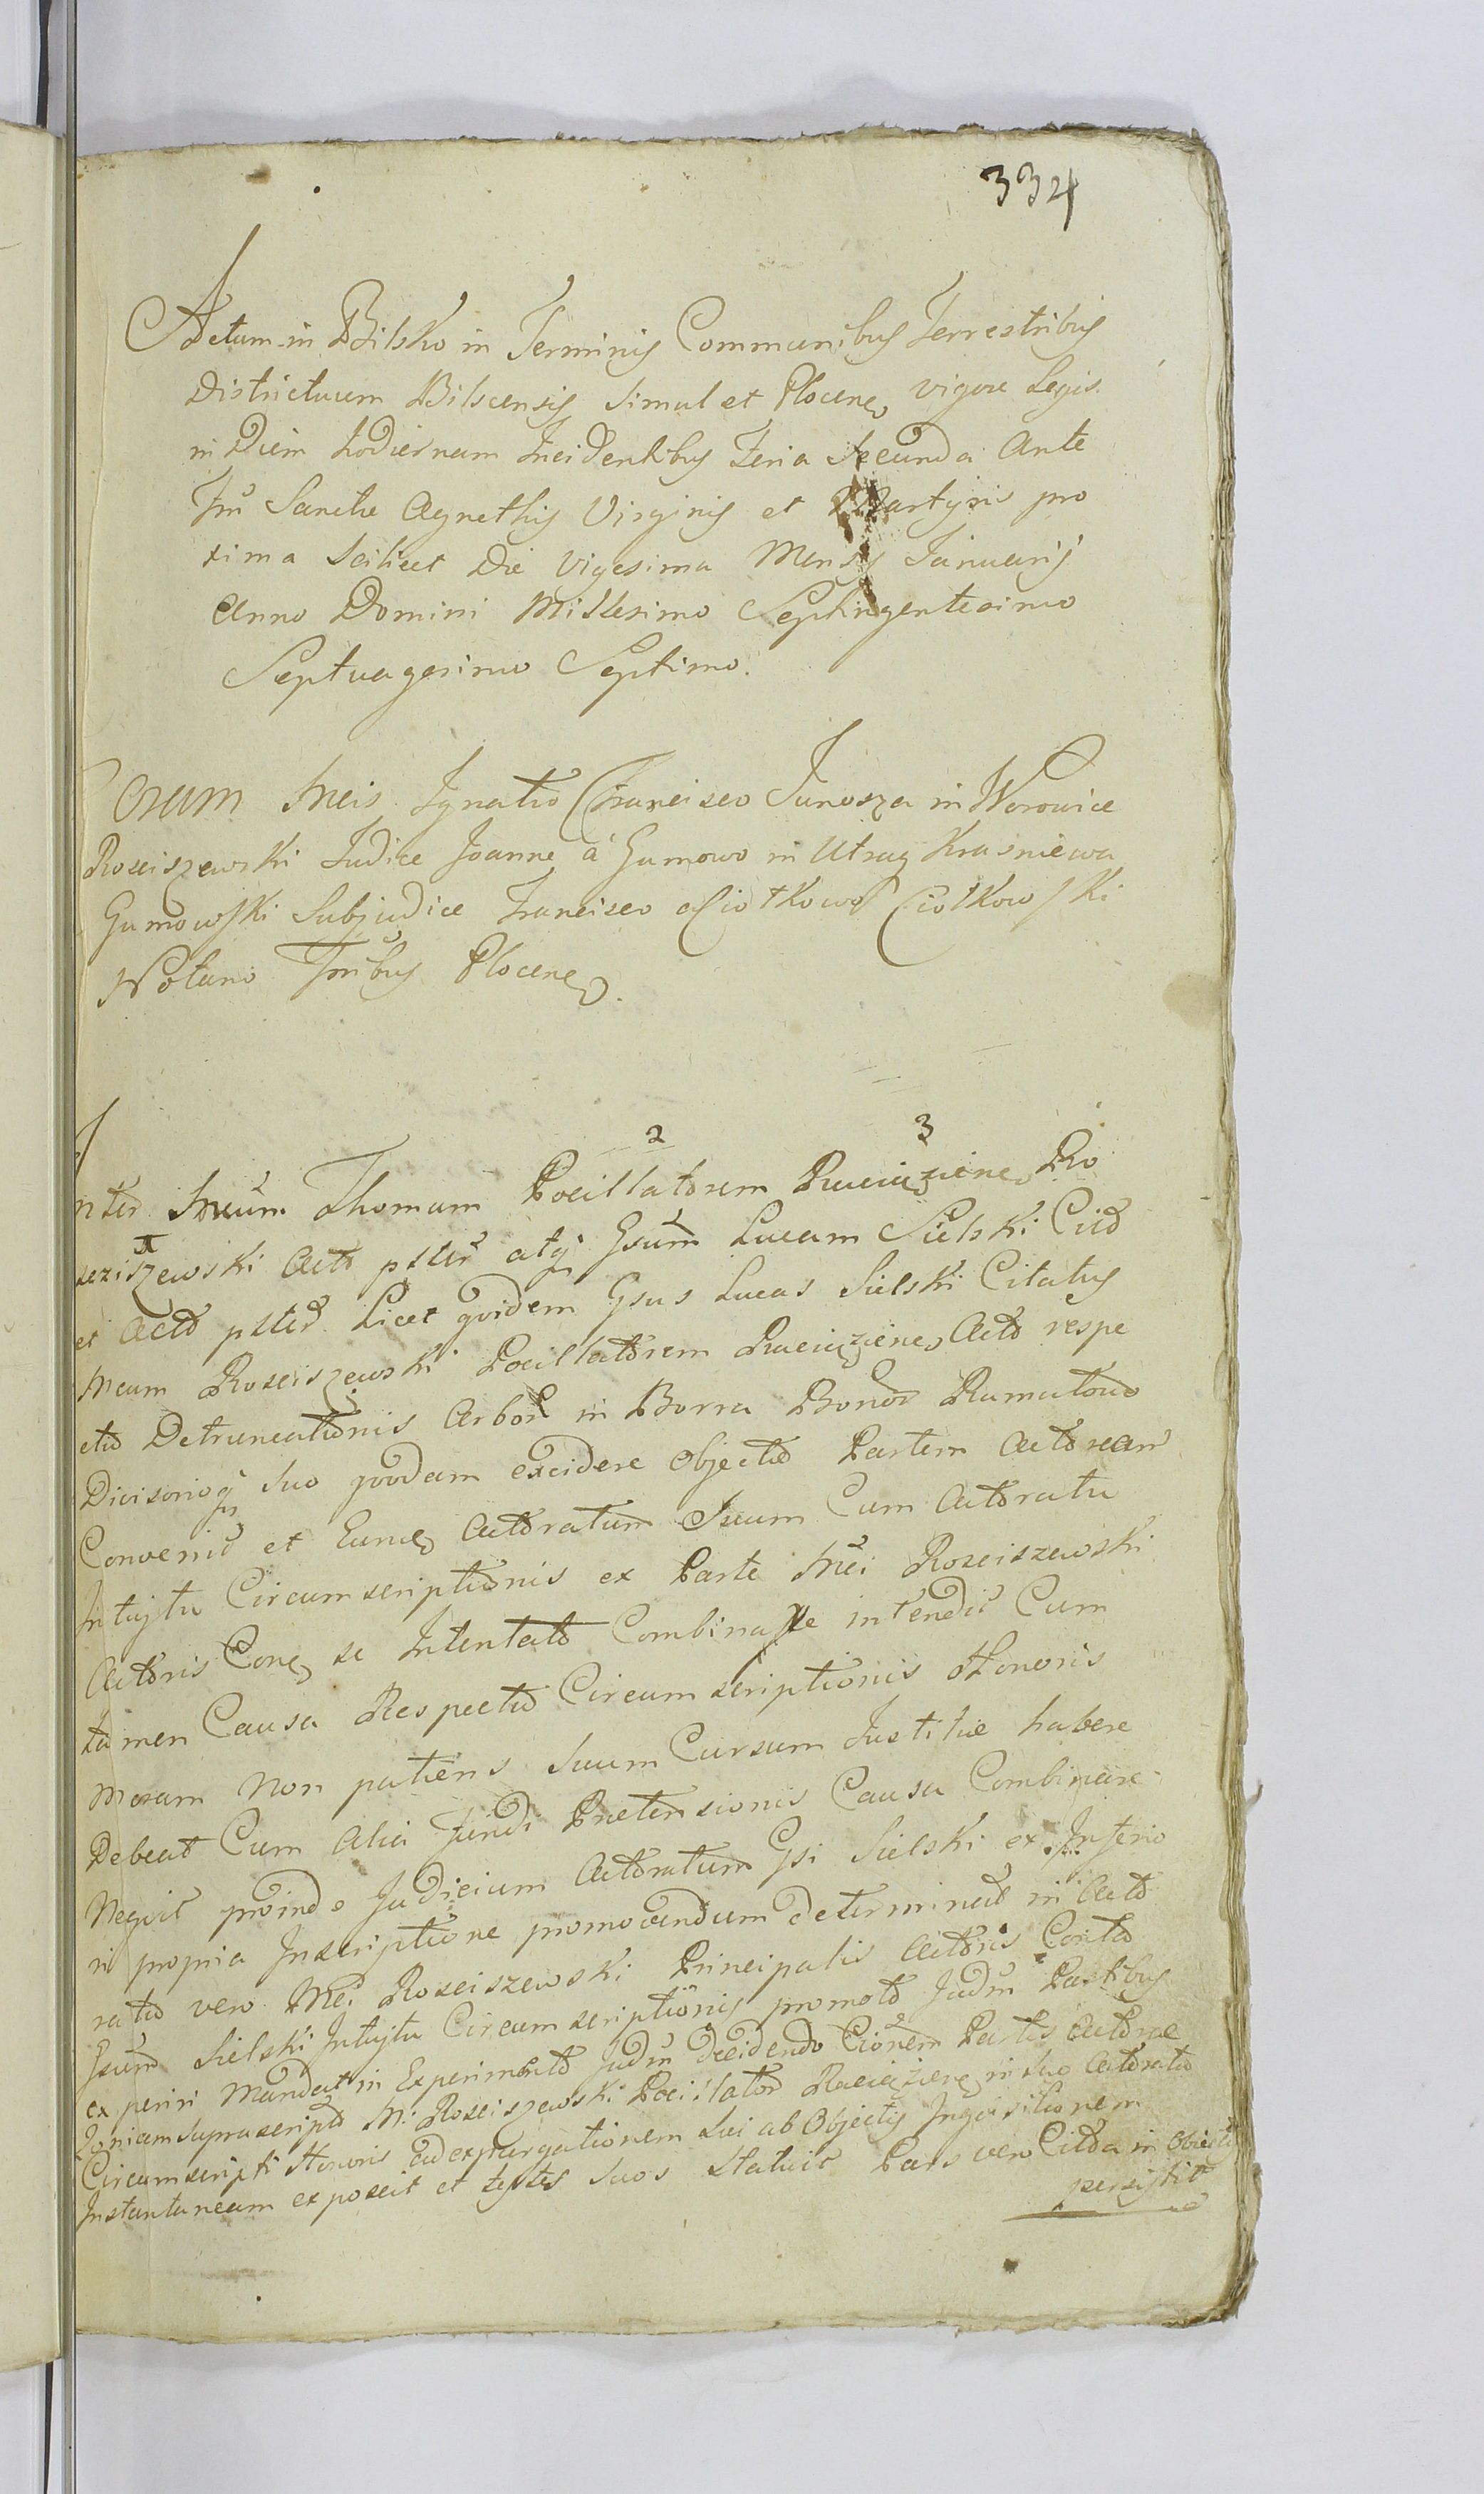 334
Actum in Bilsko in Terminis Communibus Terrestribus
Districtuum Bilscensis simul et Plocen. vigore Legis
in Diem hodiernam Incidentibus Feria Secunda Ante
Ftũ Sanctæ Agnethis Virginis et Martyris pro
xima scilicet Die Vigesima Mensis Januarij
Anno Domini Millesimo Septingentesimo
Septuagesimo Septimo.
Coram Mcis Ignatio Francisco Junosza in Worowice
Rosciszewski Judice Joanne á Gumowo in Utraq Krasniewa
Gumowski Subjudice Francisco a Ciołkowo Ciołkowski
Notario Trribus Plocen.
2 3
Inter Mcum Thomam Pocillatorem Raciąziens Ro
sziszewski Act pster atq Gsum Lucam Sielski Citt
et Acto pster Licet quidem Gsus Lucas Sielski Citatus
Mcum Rosciszewski Pocillatorem Raciąziens Acto respe
ctu Detruncationis Arbor in Borra Bonor Rumutowo
Divisorioq suo quodam excidere Objecto Partem Actoream
Convenit et Eund Actoratum Suum Cum Actoratu
Intuitu Circumscriptionis ex Parte Mci Rosciszewski
Actoris Con se Intentato Combinare intendit Cum
tamen Causa Respectu Circumscriptionis Honoris
moram non patiens Suum Cursum Justitiæ habere
Debeat Cum alia Fundi Prætensionis Causa Combinare
Nequit proinde Judicium Actoratum Gsi Sielski ex Inferio
ri propria Inscriptione promovendum determinat in Acto
ratu vero Mci Rosciszewski Principalis Actoris Contra
Gsum Sielski Intuitu Circumscriptionis promoto Judm Partibus
experiri Mandat in Experimento Judm decidendo Cionem Partis Actoreæ
Zonicam suprascripto M: Rosciszewski Pocillator Raciąziens in suo Actoratu
Circumscripti Honoris ad expurgationem sui ab Objectis Inquisitionem
Instantaneam exposcit et testes suos statuit Pars vero Citta in Obiectis
persistit